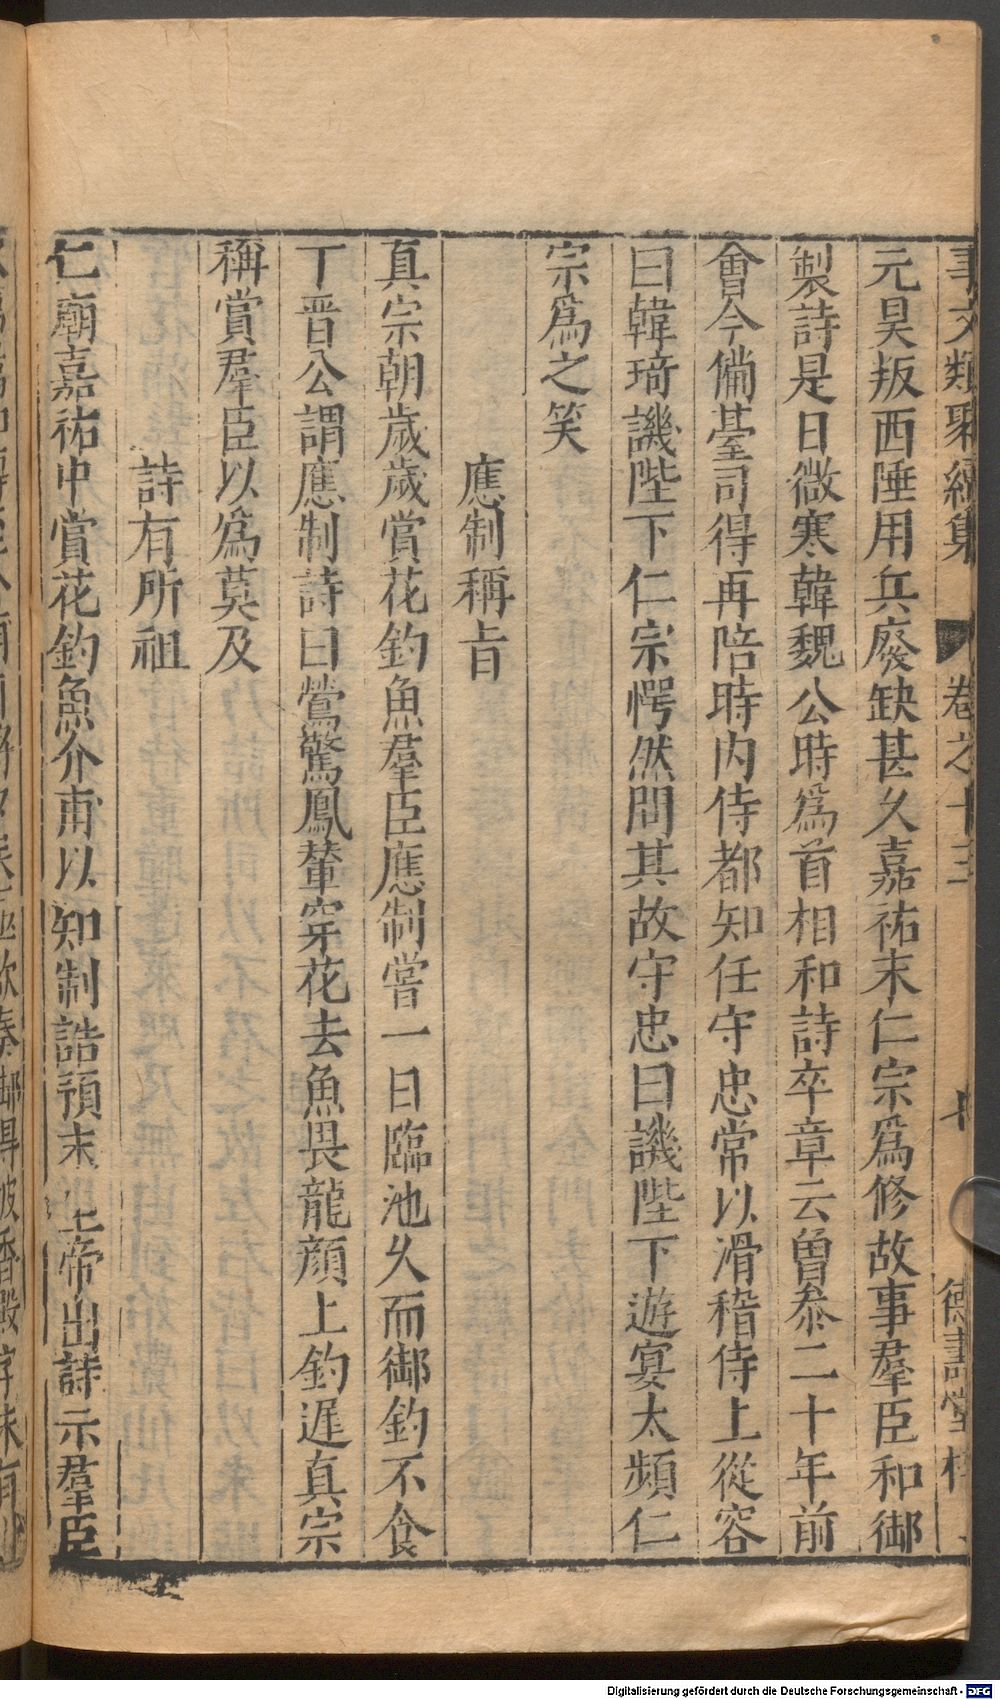 事文類聚續集 卷之十三 德壽堂梓
元昊叛西陲用兵廢缺甚久嘉祐末仁宗爲修故事羣臣和御
製詩是日微寒韓魏公時爲首相和詩卒章云曾叅二十年前
會今備䑓司得再陪時内侍都知任守忠常以滑稽侍上從容
曰韓琦譏陛下仁宗愕然問其故守忠曰譏陛下遊宴太頻仁
宗爲之笑
應制稱旨
真宗朝歲歲賞花釣魚羣臣應制嘗一日臨池久而御釣不食
丁晋公謂應制詩曰鶯驚鳳輦穿花去魚畏龍顔上釣遲真宗
稱賞羣臣以爲莫及
詩有所祖
仁廟嘉祐中賞花釣魚介甫以知制誥預末上帝出詩示羣臣
Digitalisierung gefördert durch die Deutsche Forschungsgemeinschaft - DFG